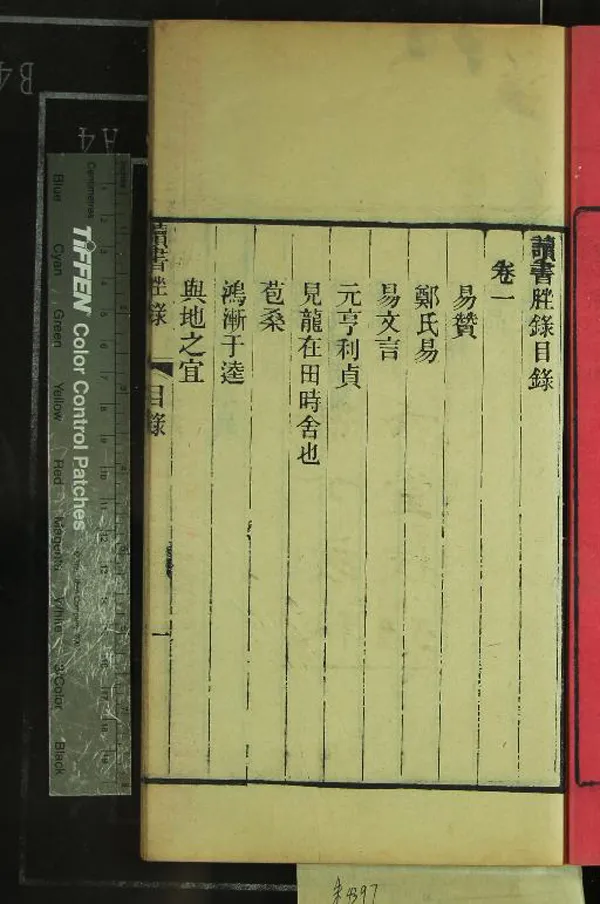 讀書脞錄目錄
卷一
易贊
鄭氏易
易文言
元亨利貞
見龍在田時舍也
苞桑
鴻漸于逵
與地之宜
讀書脞錄
目錄
一
TIFFEN Color Control Patches
Centimetres
Blue
Cyan
Green
Yellow
Red
Magenta
White
3/Color
Black
A4
B4